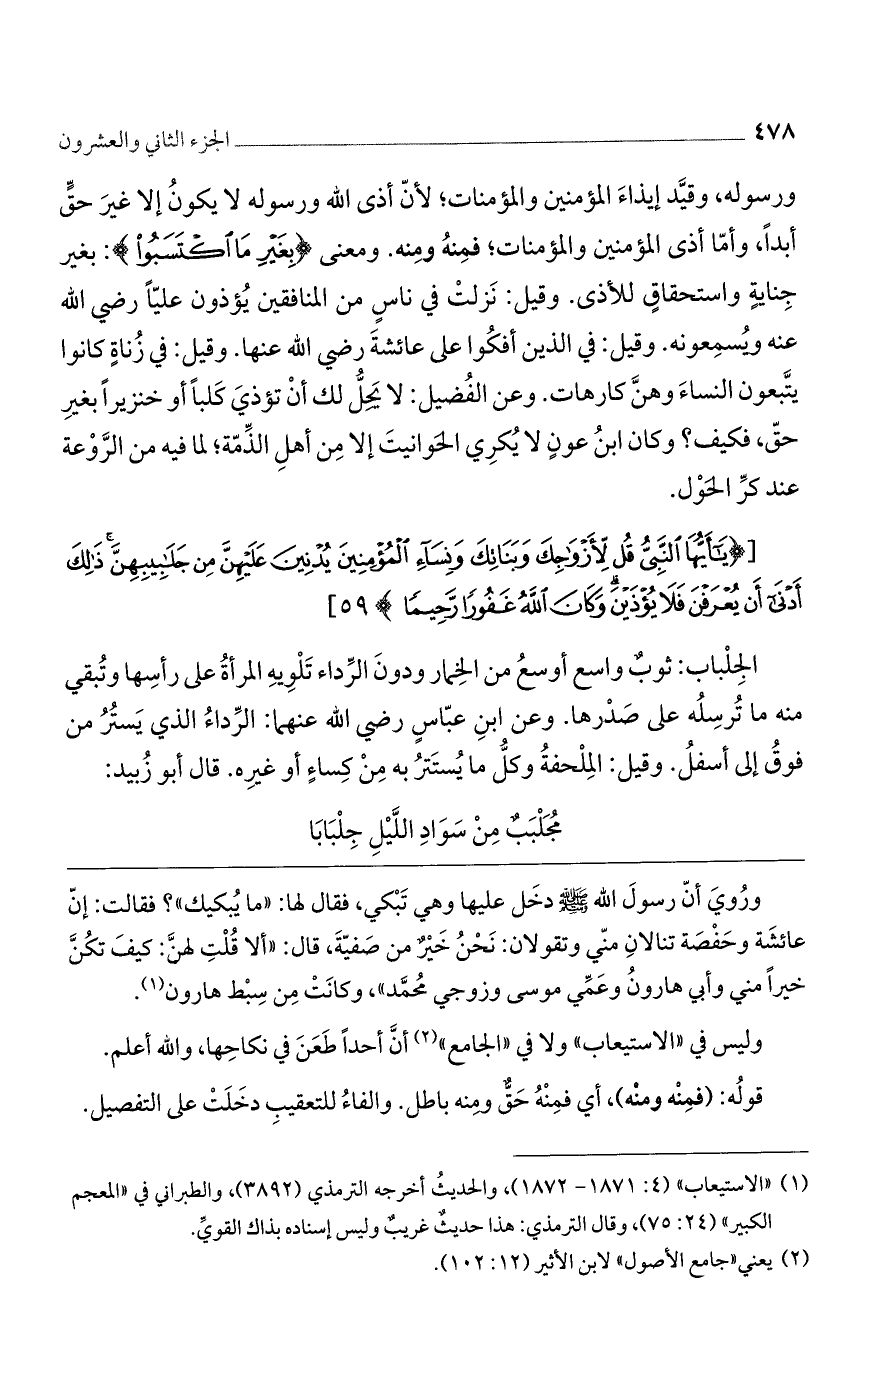 ٤٧٨ الجزء الثاني والعشرون
ورسوله، وقيَّد إيذاءَ المؤمنين والمؤمنات؛ لأنّ أذى الله ورسوله لا يكونُ إلا غيرَ حقٍّ
أبداً، وأمّا أذى المؤمنين والمؤمنات؛ فمِنهُ ومِنه. ومعنى ﴿بِغَيْرِ مَا ٱكْتَسَبُوا۟﴾: بغير
جِنايةٍ واستحقاقٍ للأذى. وقيل: نَزلتْ في ناسٍ من المنافقين يُؤذون عليّاً رضي الله
عنه ويُسمِعونه. وقيل: في الذين أفكُوا على عائشةَ رضي الله عنها. وقيل: في زُناةٍ كانوا
يتَّبعون النساءَ وهنَّ كارهات. وعن الفُضيل: لا يَحِلُّ لك أنْ تؤذيَ كَلباً أو خنزيراً بغيرِ
حقّ، فكيف؟ وكان ابنُ عونٍ لا يُكرِي الحَوانيتَ إلا مِن أهلِ الذِّمّة؛ لما فيه من الرَّوْعة
عند كرِّ الحَوْل.
[﴿يَٰٓأَيُّهَا ٱلنَّبِىُّ قُل لِّأَزْوَٰجِكَ وَبَنَاتِكَ وَنِسَآءِ ٱلْمُؤْمِنِينَ يُدْنِينَ عَلَيْهِنَّ مِن جَلَٰبِيبِهِنَّ ۚ ذَٰلِكَ
أَدْنَىٰٓ أَن يُعْرَفْنَ فَلَا يُؤْذَيْنَ ۗ وَكَانَ ٱللَّهُ غَفُورًا رَّحِيمًا﴾ ٥٩]
الجِلْباب: ثوبٌ واسع أوسعُ من الخِمار ودونَ الرِّداء تَلْوِيهِ المرأةُ على رأسِها وتُبقي
منه ما تُرسِلُه على صَدْرها. وعن ابنِ عبّاسٍ رضي الله عنهما: الرِّداءُ الذي يَستُرُ من
فوقُ إلى أسفلُ. وقيل: المِلْحفةُ وكلُّ ما يُستَترُ به مِنْ كِساءٍ أو غيرِه. قال أبو زُبيد:
مُجَلْبَبٌ مِنْ سَوَادِ اللَّيْلِ جِلْبَابَا
ورُويَ أنّ رسولَ الله ﷺ دخَل عليها وهي تَبْكي، فقال لها: «ما يُبكيك»؟ فقالت: إنّ
عائشَة وحَفْصَة تنالانِ منّي وتقولان: نَحْنُ خَيْرٌ من صَفيّةَ، قال: «ألا قُلْتِ لهنَّ: كيفَ تكُنَّ
خيراً مني وأبي هارونُ وعَمِّي موسى وزوجي محُمَّد»، وكانَتْ مِن سِبْط هارون(١).
وليس في «الاستيعاب» ولا في «الجامع»(٢) أنَّ أحداً طَعَنَ في نكاحِها، والله أعلم.
قولُه: (فمِنْه ومنْه)، أي فمِنْهُ حَقٌّ ومِنه باطل. والفاءُ للتعقيبِ دخَلَتْ على التفصيل.
(١) «الاستيعاب» (٤: ١٨٧١- ١٨٧٢)، والحديثُ أخرجه الترمذي (٣٨٩٢)، والطبراني في «المعجم
الكبير» (٢٤: ٧٥)، وقال الترمذي: هذا حديثٌ غريبٌ وليس إسناده بذاك القويِّ.
(٢) يعني«جامع الأصول» لابن الأثير (١٢: ١٠٢).